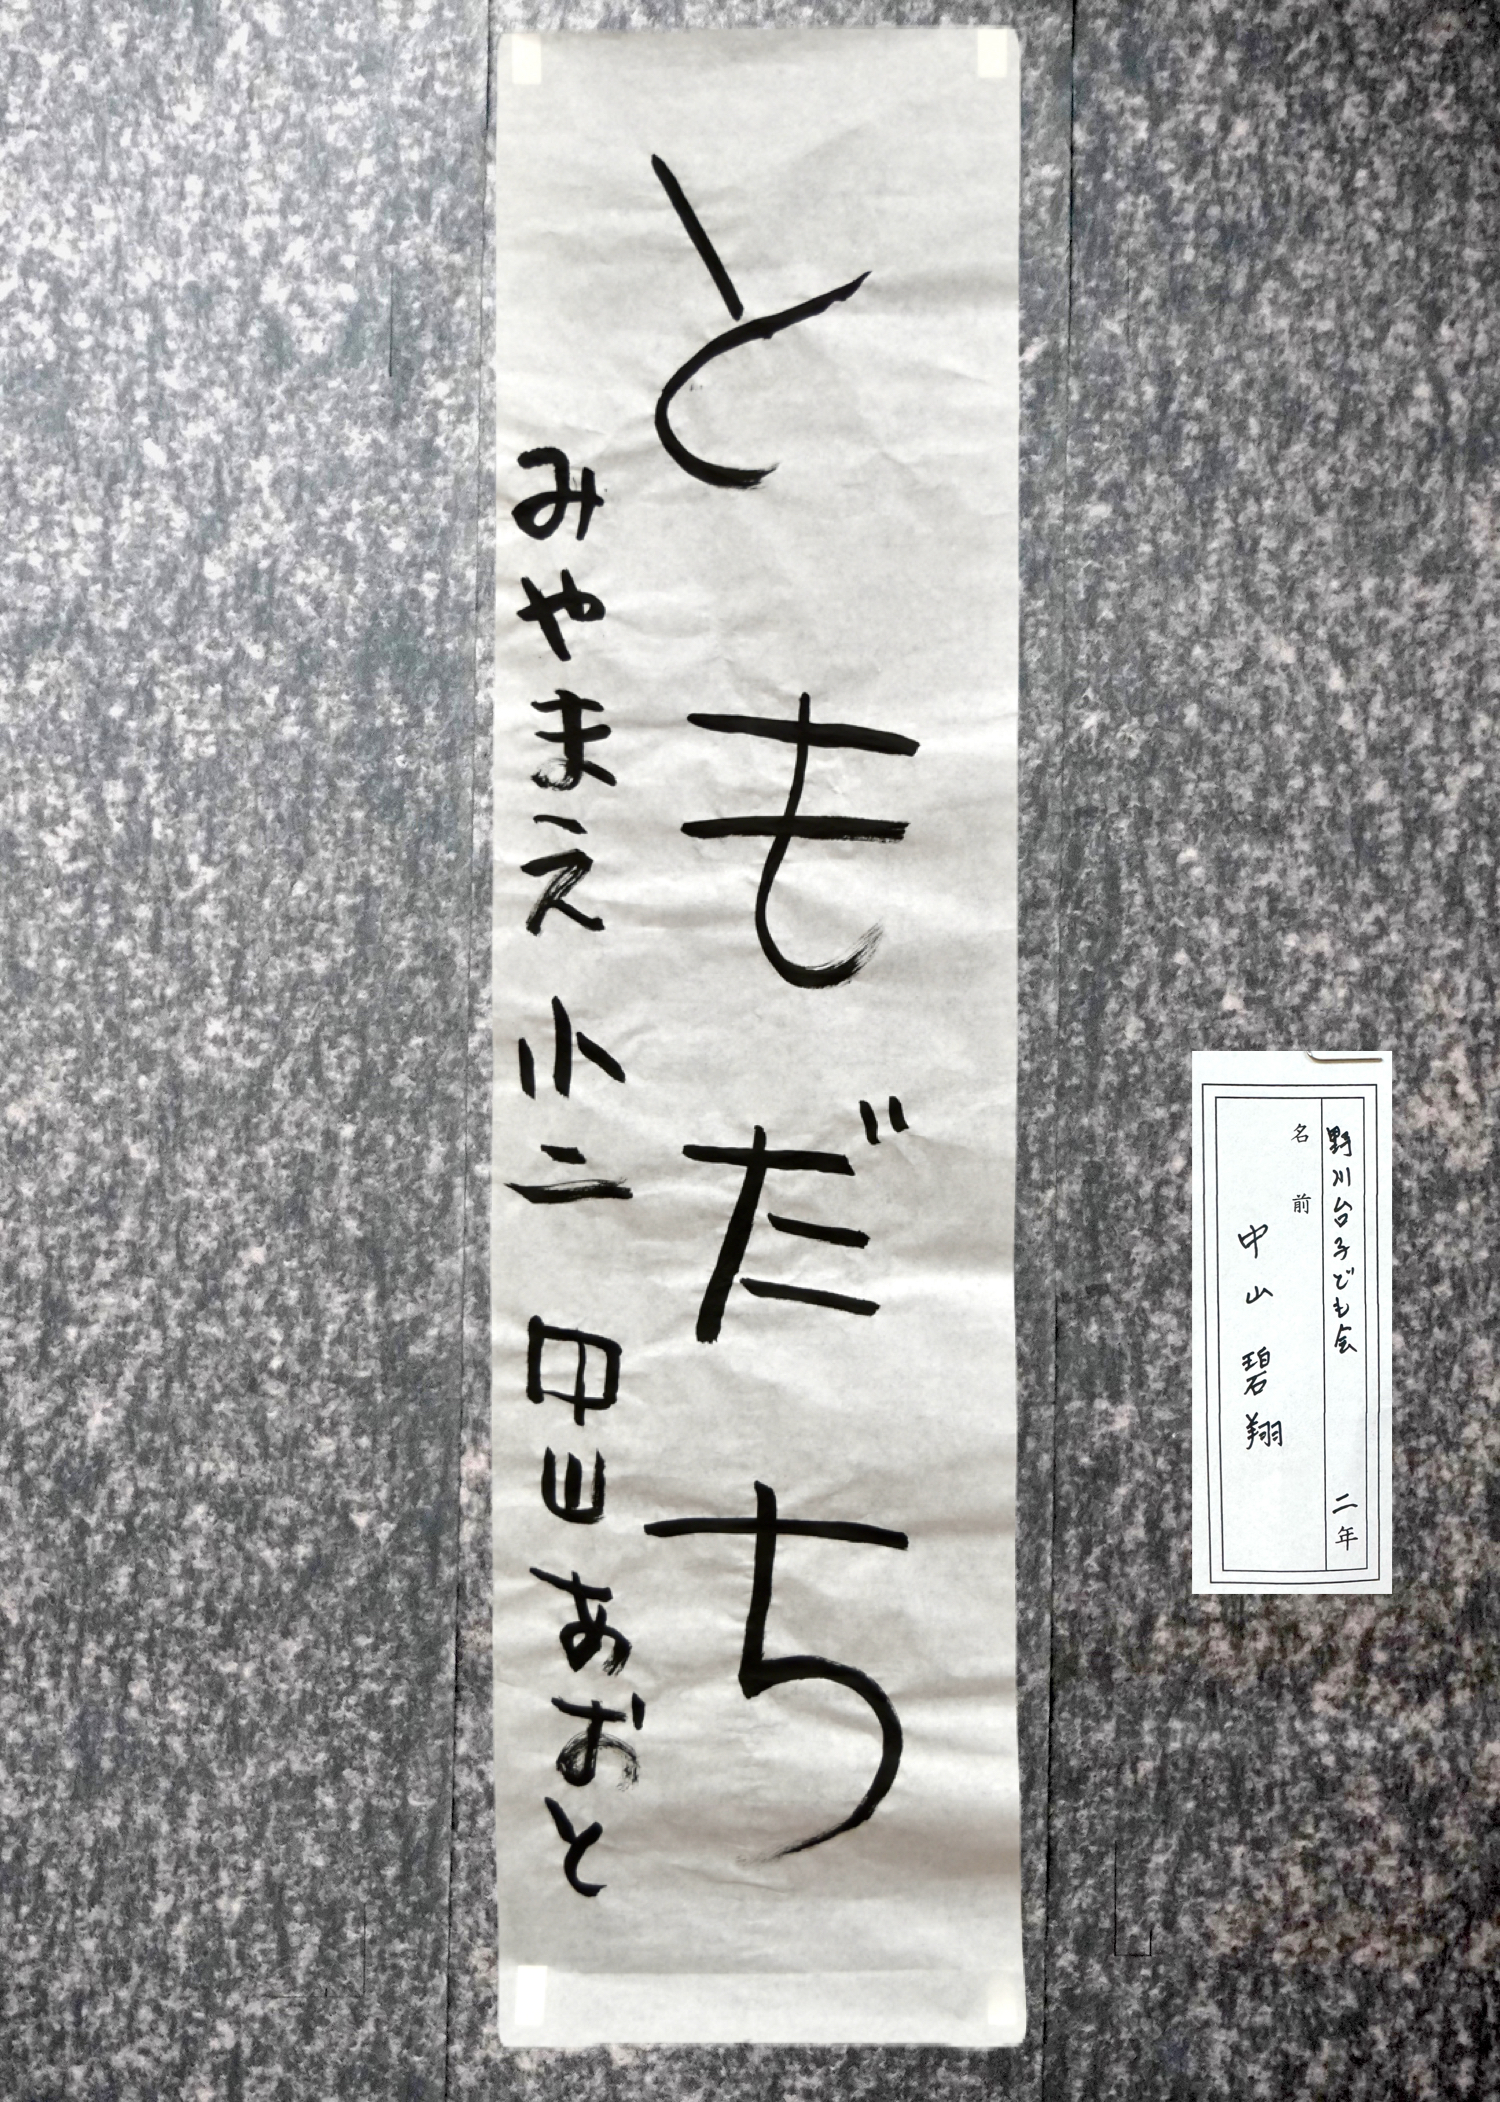 ともだち
みやまえ小二 中山あおと
野川台子ども会 二年
名前
中山碧翔